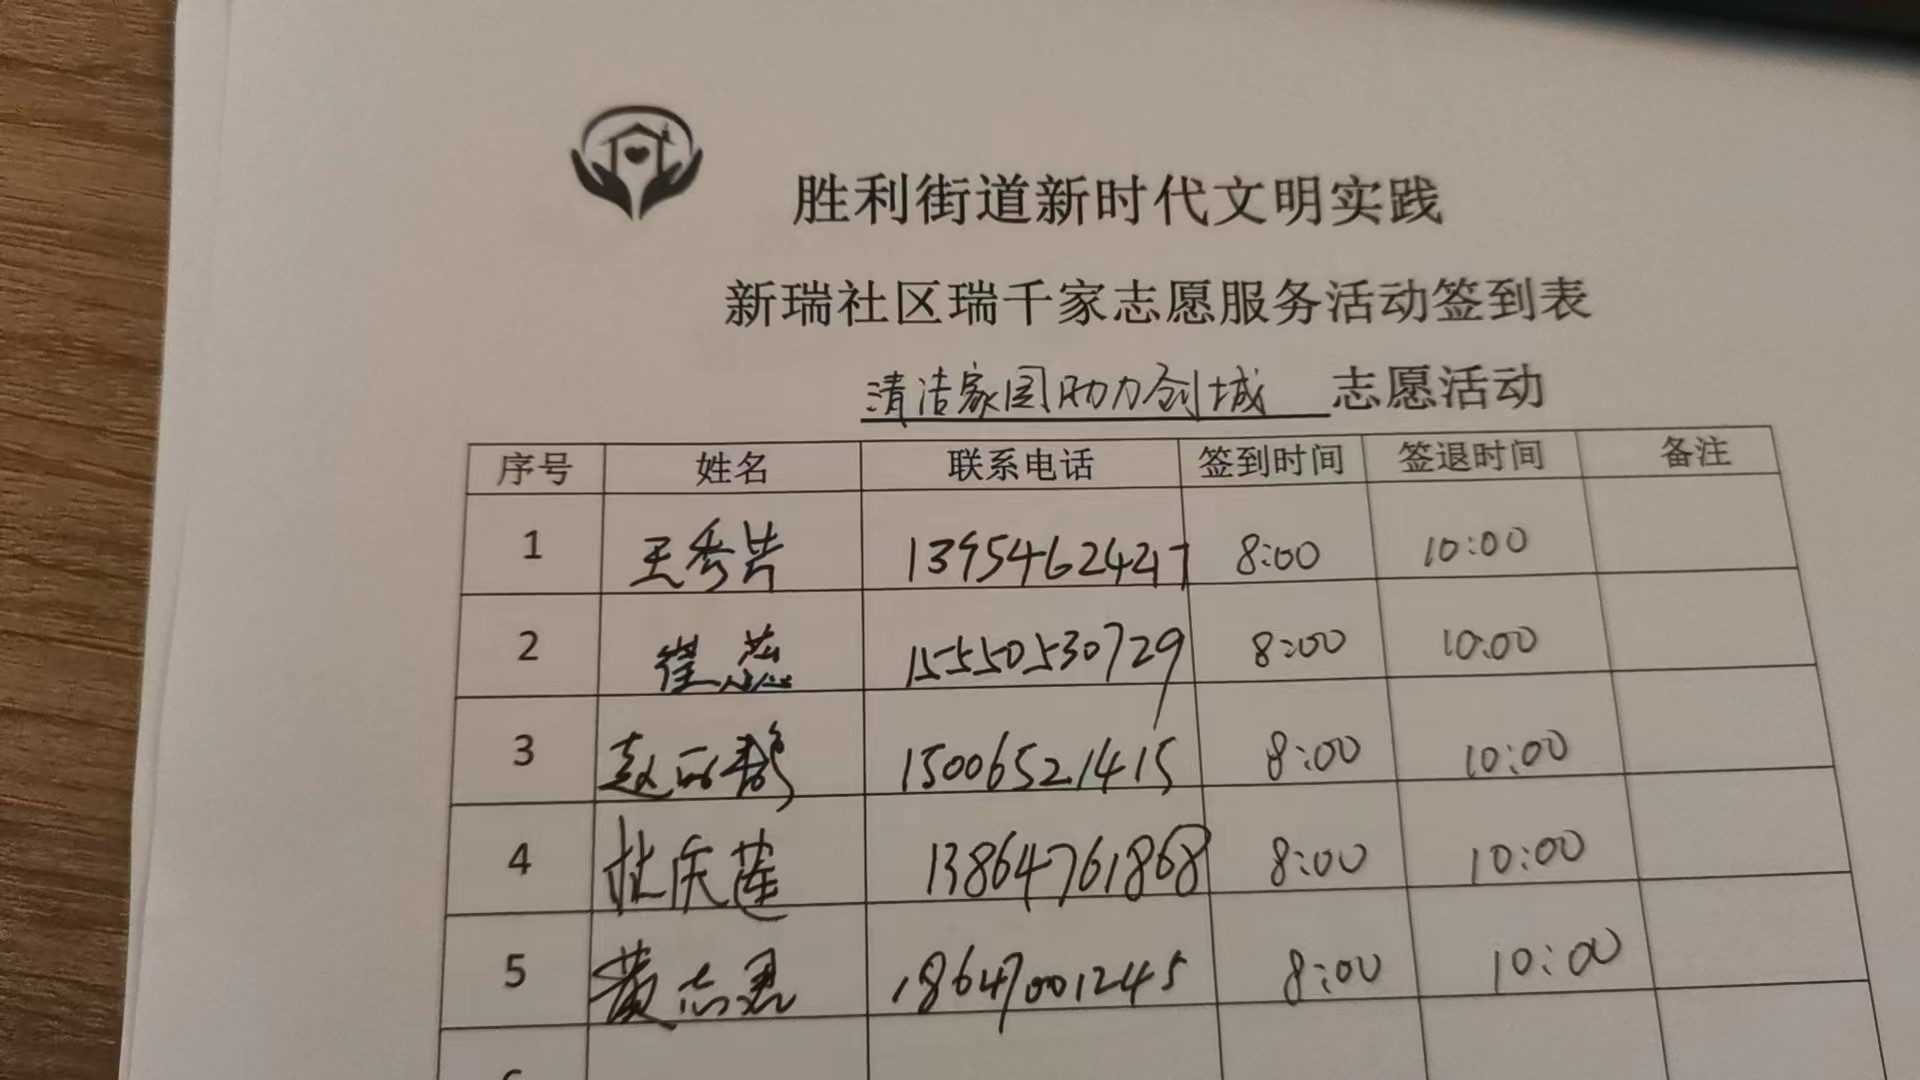 胜利街道新时代文明实践
新瑞社区瑞千家志愿服务活动签到表
清洁家园助力创城 志愿活动
序号 姓名 联系电话 签到时间 签退时间 备注
1 王秀芹 13954624217 8:00 10:00
2 崔蕊 15550530729 8:00 10:00
3 赵 15006521415 8:00 10:00
4 杜庆莲 13864761868 8:00 10:00
5 黄志君 18647001245 8:00 10:00